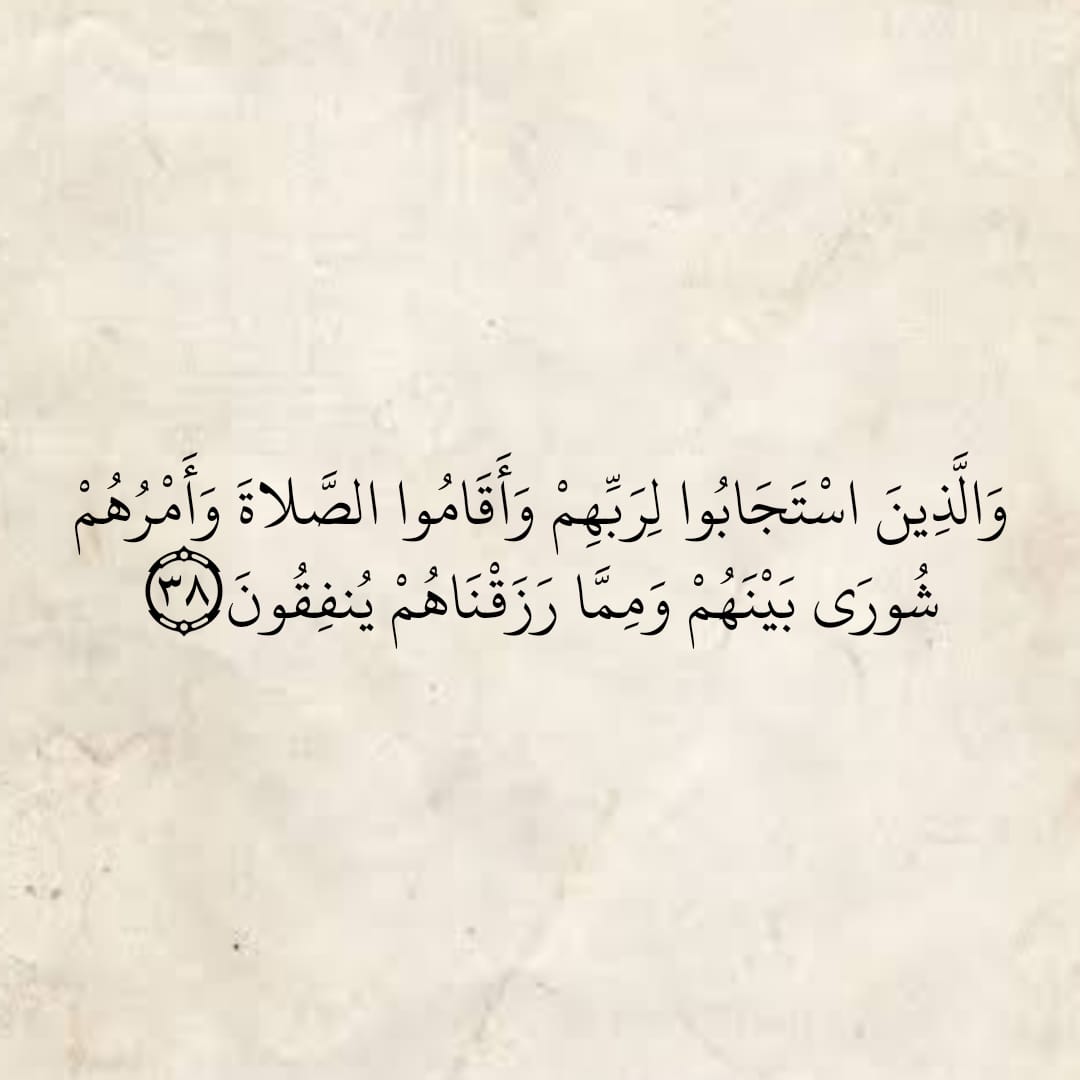 وَالَّذِينَ اسْتَجَابُوا لِرَبِّهِمْ وَأَقَامُوا الصَّلاةَ وَأَمْرُهُمْ
شُورَى بَيْنَهُمْ وَمِمَّا رَزَقْنَاهُمْ يُنفِقُونَ ٣٨